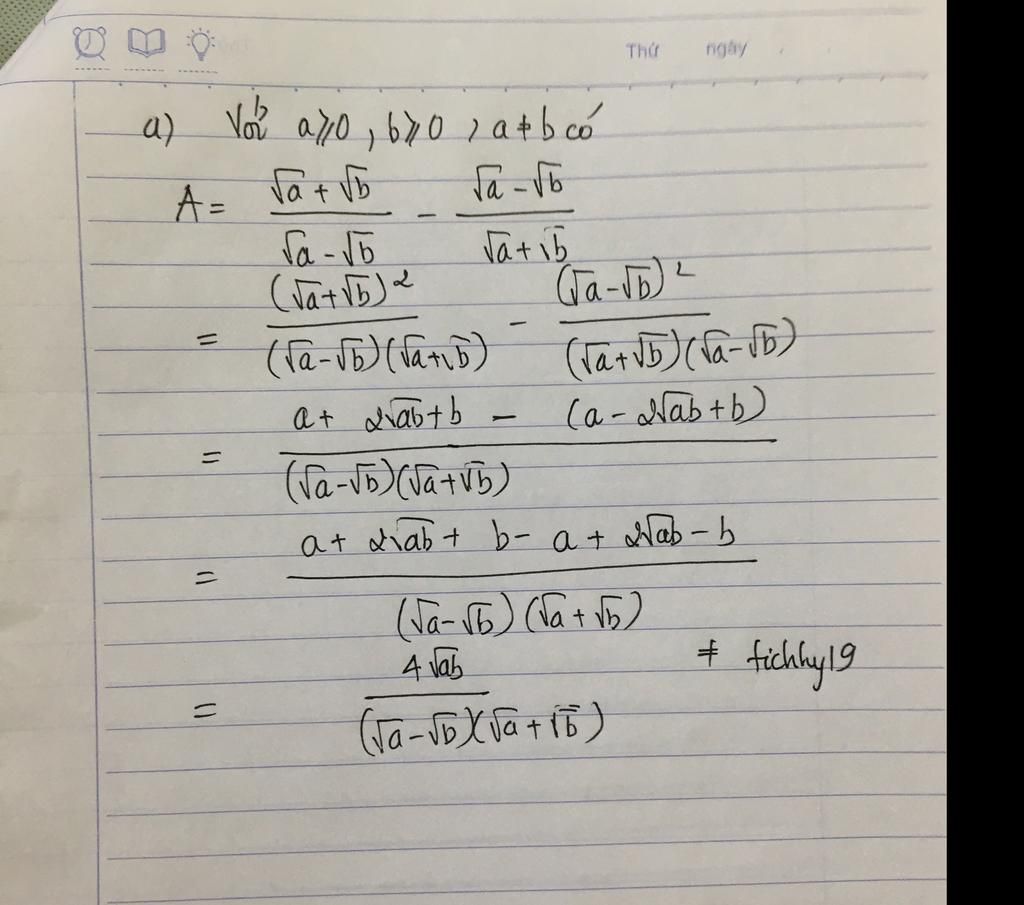 Thứ ngày . .
a) Với a ⩾ 0, b ⩾ 0, a ≠ b có
A = (√a + √b)/(√a - √b) - (√a - √b)/(√a + √b)
= (√a + √b)²/((√a - √b)(√a + √b)) - (√a - √b)²/((√a + √b)(√a - √b))
= (a + 2√ab + b - (a - 2√ab + b))/((√a - √b)(√a + √b))
= (a + 2√ab + b - a + 2√ab - b)/((√a - √b)(√a + √b))
= 4√ab/((√a - √b)(√a + √b))
# fichhy19